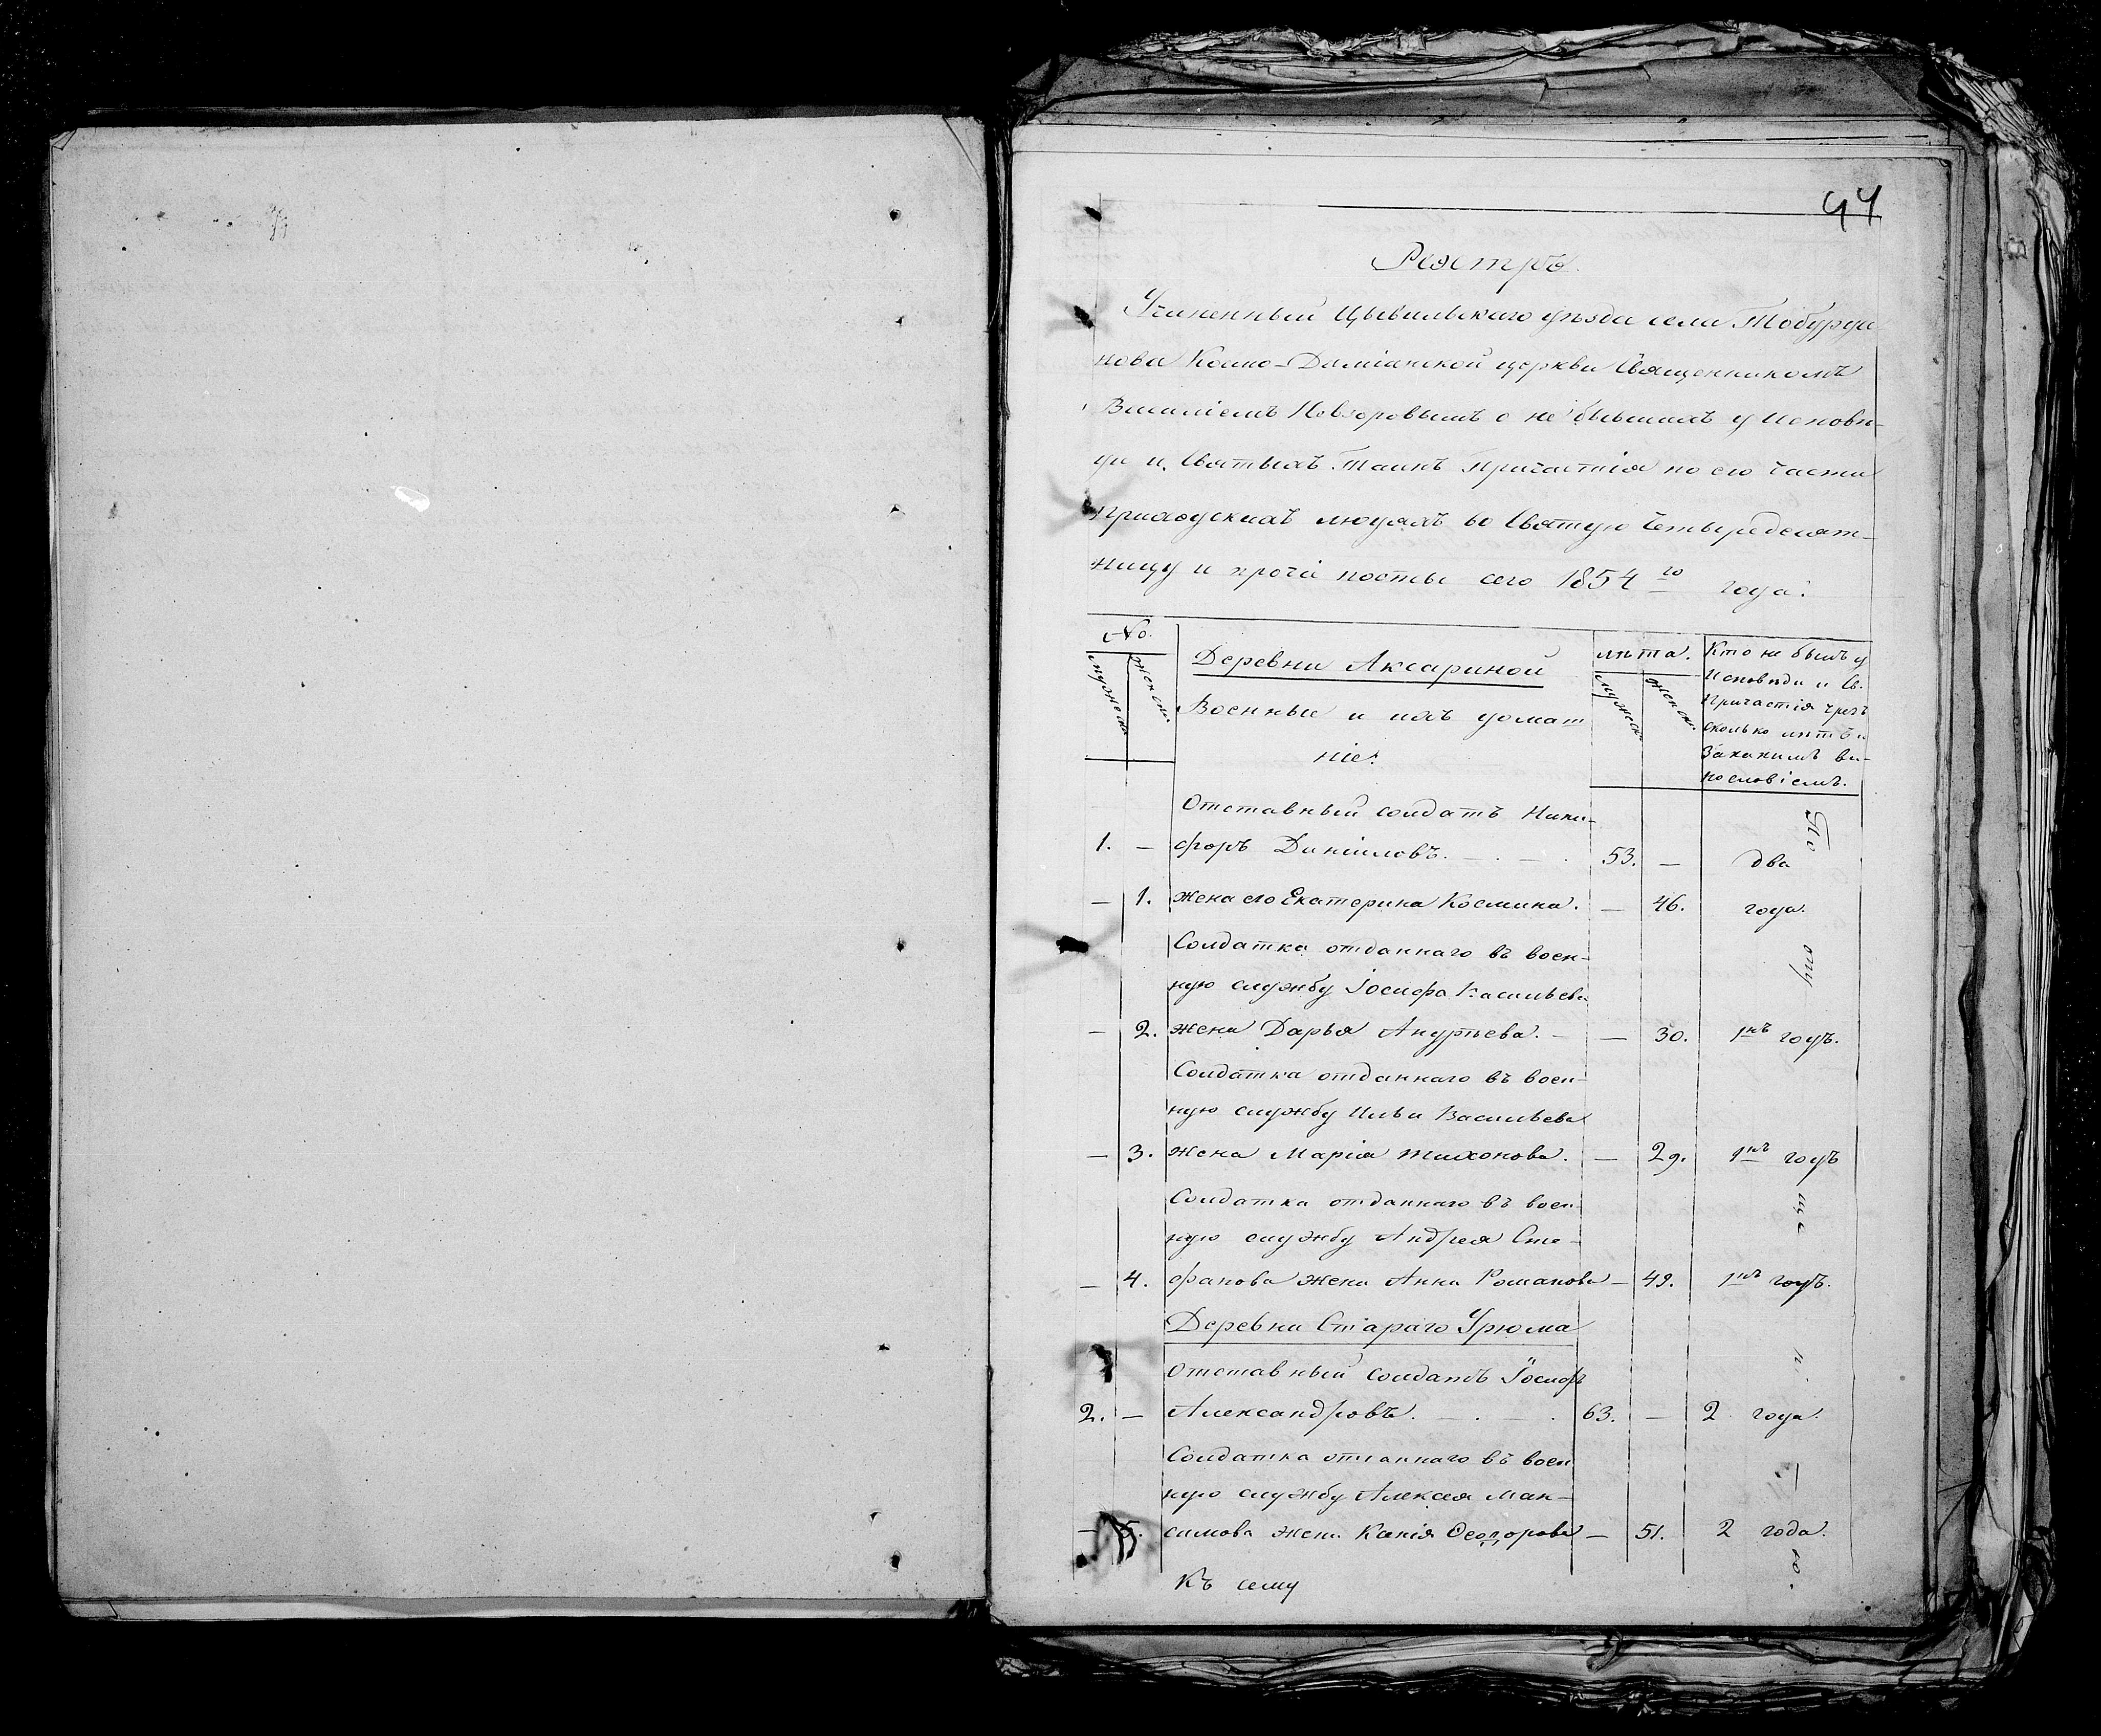 44
Реэстръ.
Учиненный Цывильскаго уѣзда села Тобурда
нова Космо-Даміанской церкви Священникомъ
Василіемъ Невзоровымъ о не бывшихъ у исповѣ-
ди и Святыхъ Таинъ Причастія по его части
приходскихъ людяхъ во Святую Четыредесят-
ницу и прочіи посты сего 1854 го года.
No. Деревни Аксариной лѣта. Кто не былъ у
мужеск. женск. мужеск. женск. Исповѣди и Св.
Военные и ихъ домаш Причастія чрезъ
ніе. сколько лѣтъ и
За какимъ ви-
нословіемъ.
Отставный солдатъ Ники-
1. — форъ Даніиловъ. — . — . 53. — два
— 1. жена его Екатерина Космина. — 46. года.
Солдатка отданнаго въ воен-
ную службу Іосифа Васильева
— 2. жена Дарья Андреева. — — 30. 1нъ годъ.
Солдатка отданнаго въ воен-
ную службу Ильи Васильева
— 3. жена Марія Тихонова. — 29. 1нъ годъ
Солдатка отданнаго въ воен-
ную службу Андрея Сте-
— 4. фанова жена Анна Романова — 49. 1нъ годъ.
Деревни Стараго Урюма
Отставный солдатъ Іосифъ
2. — Александровъ. — . — . 63. — 2 года.
Солдатка отданнаго въ воен
ную службу Алексея Мак-
— 5. симова жена Ѳеодорова — 51. 2 года.
Къ сему
По
опу
ще
н.
і
ю.